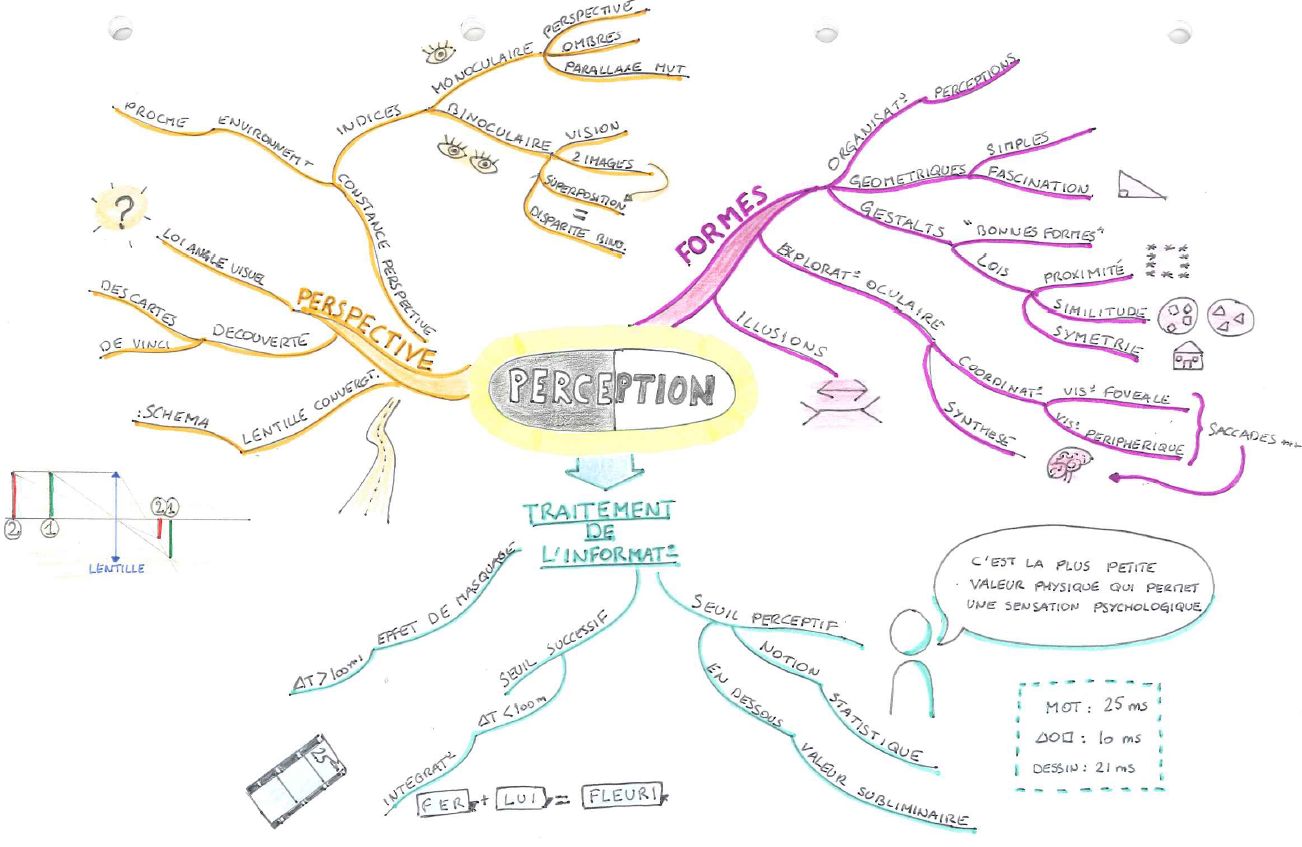 PERCEPTION
PERSPECTIVE
PROCHE ENVIRONNEMT
INDICES
MONOCULAIRE
PERSPECTIVE
OMBRES
PARALLAXE MVT
BINOCULAIRE
VISION
2 IMAGES
SUPERPOSITION
=
DISPARITE BINO.
CONSTANCE PERSPECTIVE
?
LOI ANGLE VISUEL
DECOUVERTE
DESCARTES
DE VINCI
LENTILLE CONVERGT.
:SCHEMA
2 1
2 1
LENTILLE
FORMES
ORGANISAT° PERCEPTIONS
GEOMETRIQUES
SIMPLES
FASCINATION
GESTALTS
"BONNES FORMES"
LOIS
PROXIMITÉ
SIMILITUDE
SYMETRIE
EXPLORAT° OCULAIRE
COORDINAT°
VIS° FOVEALE
VIS° PERIPHERIQUE
SACCADES
SYNTHESE
ILLUSIONS
TRAITEMENT
DE
L'INFORMAT°
EFFET DE MASQUAGE
ΔT > 100 ms
SEUIL SUCCESSIF
ΔT < 100 m
INTEGRAT°
25
FER + LUI = FLEURI
SEUIL PERCEPTIF
NOTION STATISTIQUE
EN DESSOUS VALEUR SUBLIMINAIRE
C'EST LA PLUS PETITE
VALEUR PHYSIQUE QUI PERMET
UNE SENSATION PSYCHOLOGIQUE
MOT : 25 ms
△○□ : 10 ms
DESSIN : 21 ms